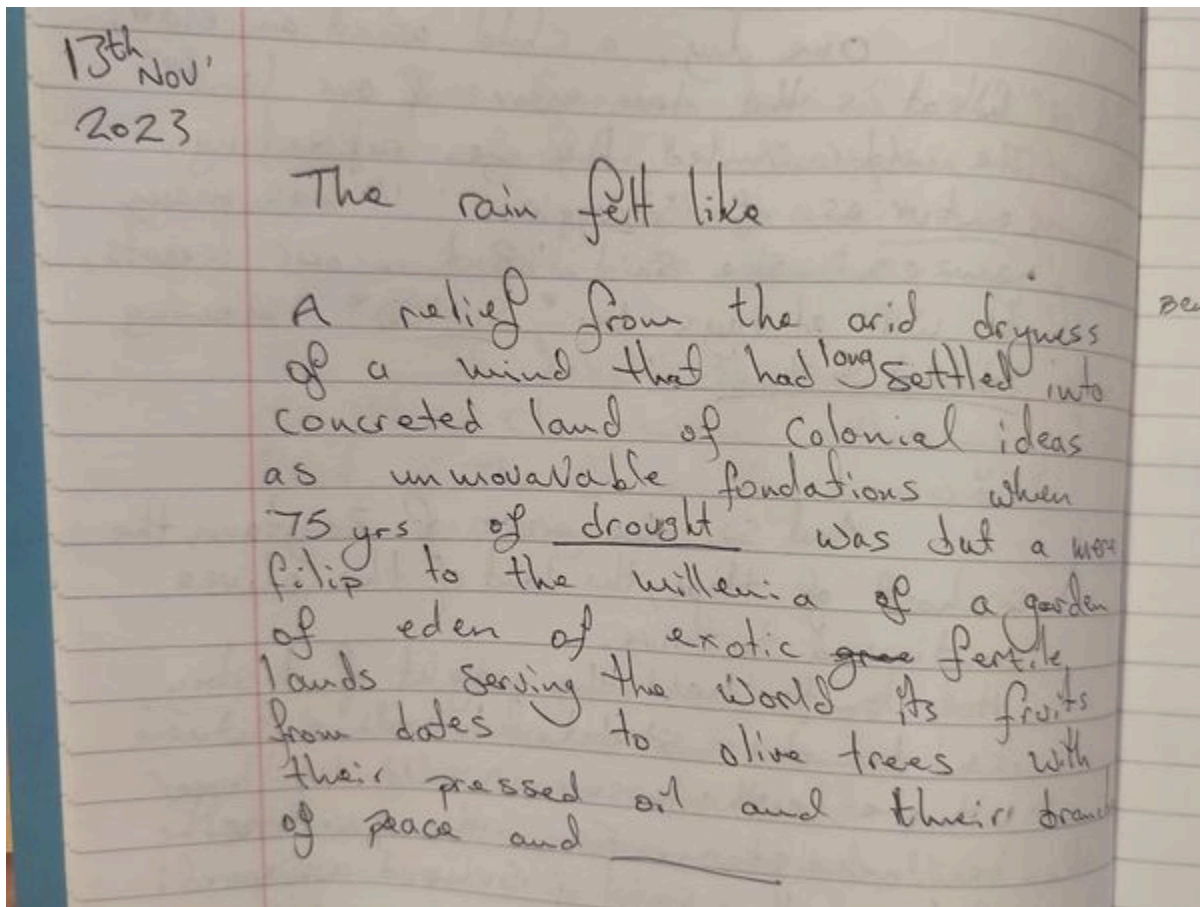 13th Nov'
2023
The rain felt like
A relief from the arid dryness
of a mind that had long settled into
concreted land of colonial ideas
as unmovavable fondations when
75 yrs of drought was but a mere
filip to the millenia of a garden
of eden of exotic fertile
lands serving the world its fruits
from dates to olive trees with
their pressed oil and their branch
of peace and